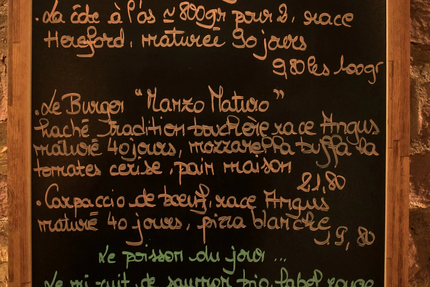 . La côte à l'os ≃ 800gr pour 2, race
Hereford, maturée 30 jours
9,80 les 100gr
. Le Burger "Manzo Maturo"
haché Tradition bouchère, race Angus
maturé 40 jours, mozzarella buffala
tomates cerise, pain maison
21,80
. Carpaccio de bœuf, race Angus
maturé 40 jours, pizza blanche
19,80
Le poisson du jour ...
Le mi cuit de saumon bio, label rouge